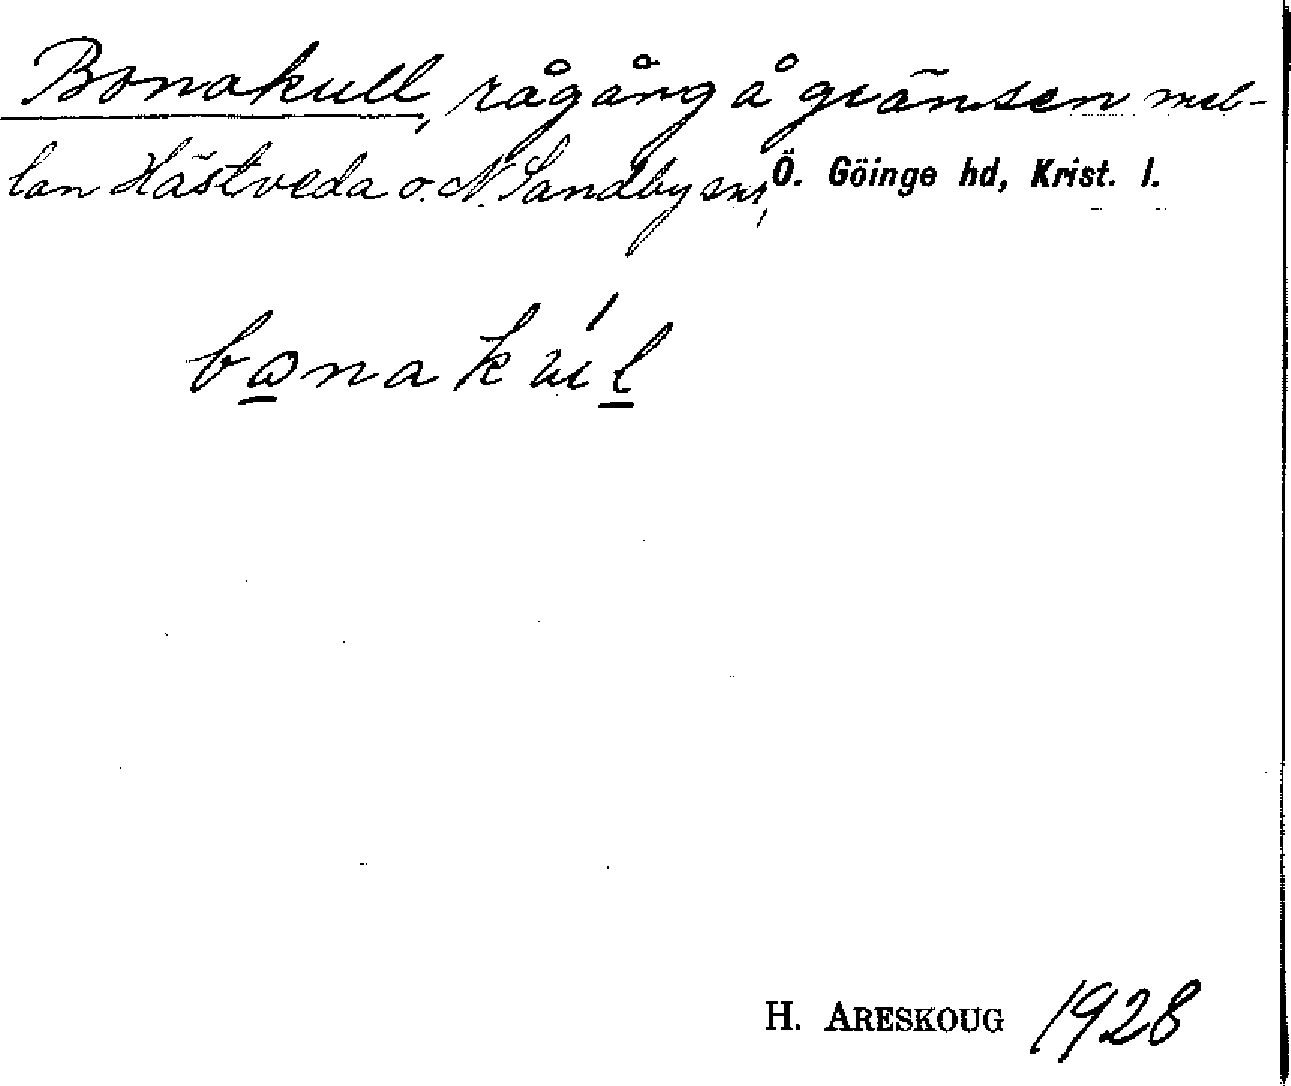 Bonakull, rågång å gränsen mel-
lan Hästveda o. N. Sandby snr, Ö. Göinge hd, Krist. l.
bωnakúl
H. ARESKOUG 1928